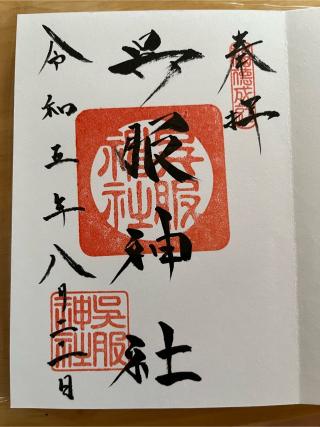 奉拝
呉服神社
呉服神社
令和五年八月二十一日
呉服神社